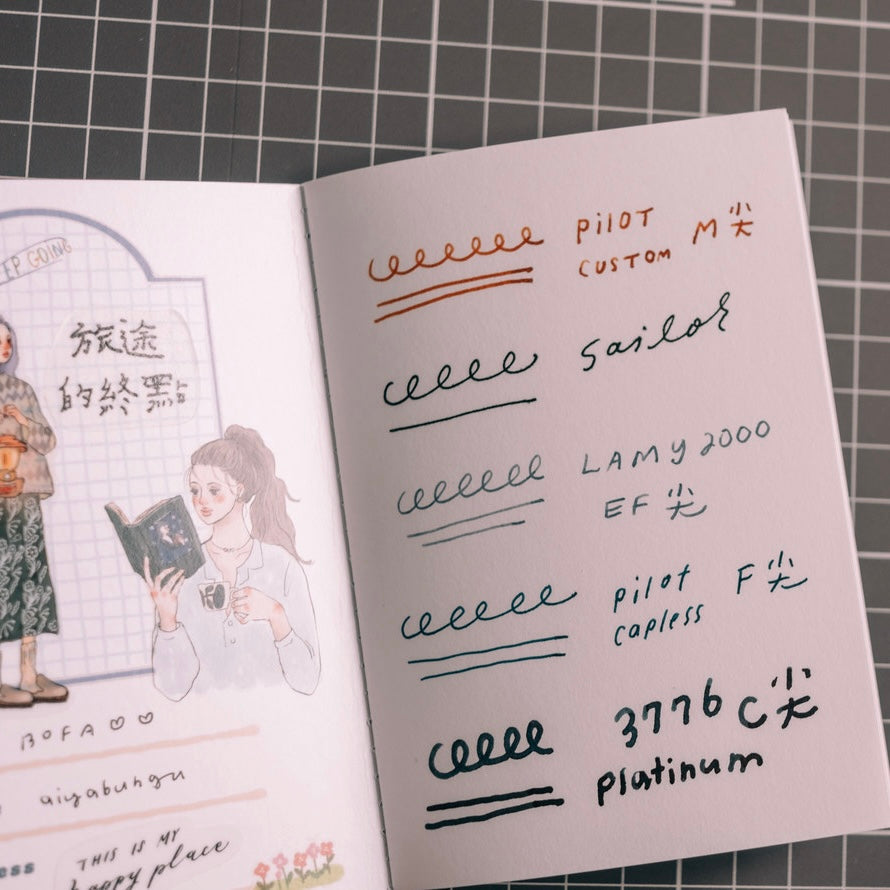 EP GOING
旅途
的終點
BOFA ♡♡
aiyabungu
THIS IS MY
happy place
PILOT M尖
CUSTOM
Sailor
LAMY 2000
EF 尖
pilot F尖
capless
3776 C尖
platinum